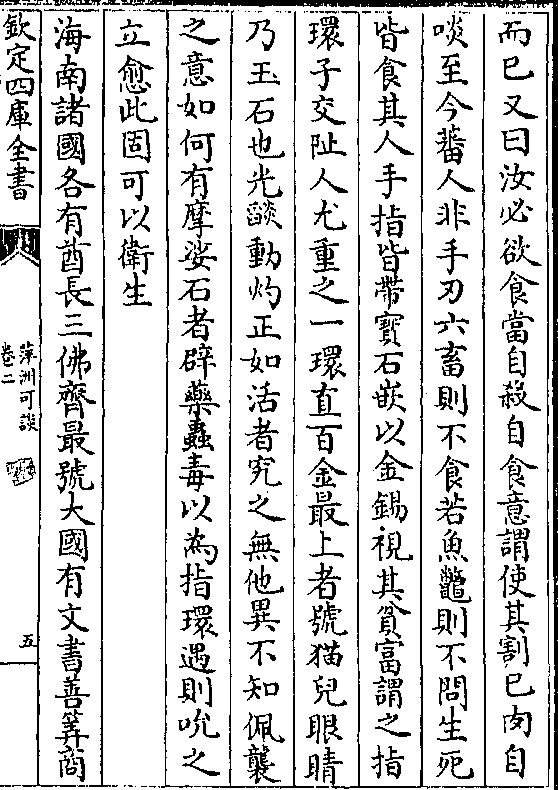 而已又曰汝必欲食當自殺自食意謂使其割已肉自
啖至今蕃人非手刃六畜則不食若魚鼈則不問生死
皆食其人手指皆帶寳石嵌以金錫視其貧富謂之指
環子交阯人尤重之一環直百金最上者號猫兒眼睛
乃玉石也光燄動灼正如活者究之無他異不知佩襲
之意如何有摩娑石者辟藥蟲毒以為指環遇則吮之
立愈此固可以衛生
海南諸國各有酋長三佛齊最號大國有文書善筭商
欽定四庫全書
萍洲可談
卷二
五